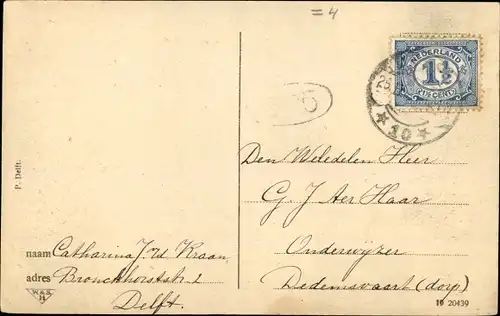 = 4
6
NEDERLAND
1½
1½ CENT
★ 10 ★
Den Weledelen Heer
G. J. ter Haar
Onderwijzer
Dedemsvaart (dorp)
P. Delft.
naam Catharina J. v/d Kraan
adres Bronckhorststr. 2
Delft.
W & S
H
10 20439